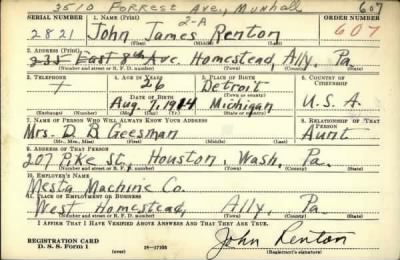 3510 FORREST Ave., Munhall 607
SERIAL NUMBER 1. NAME (Print) ORDER NUMBER
2-A
2821 John James Renton 607
(First) (Middle) (Last)
2. ADDRESS (Print)
235 East 8th Ave. Homestead, Ally. Pa.
(Number and street or R. F. D. number) (Town) (County) (State)
3. TELEPHONE 4. AGE IN YEARS 5. PLACE OF BIRTH 6. COUNTRY OF CITIZENSHIP
26 Detroit
DATE OF BIRTH (Town or county)
Aug. 7, 1914 Michigan U.S.A.
(Exchange) (Number) (Mo.) (Day) (Yr.) (State or country)
7. NAME OF PERSON WHO WILL ALWAYS KNOW YOUR ADDRESS 8. RELATIONSHIP OF THAT PERSON
Mrs. D. B Geesman Aunt
(Mr., Mrs., Miss) (First) (Middle) (Last)
9. ADDRESS OF THAT PERSON
207 Pike St., Houston, Wash, Pa.
(Number and street or R. F. D. number) (Town) (County) (State)
10. EMPLOYER'S NAME
Mesta Machine Co.
11. PLACE OF EMPLOYMENT OR BUSINESS
West Homestead, Ally. Pa.
(Number and street or R. F. D. number) (Town) (County) (State)
I AFFIRM THAT I HAVE VERIFIED ABOVE ANSWERS AND THAT THEY ARE TRUE.
REGISTRATION CARD
D. S. S. Form 1 (over) 16-17105 John Renton
(Registrant's signature)